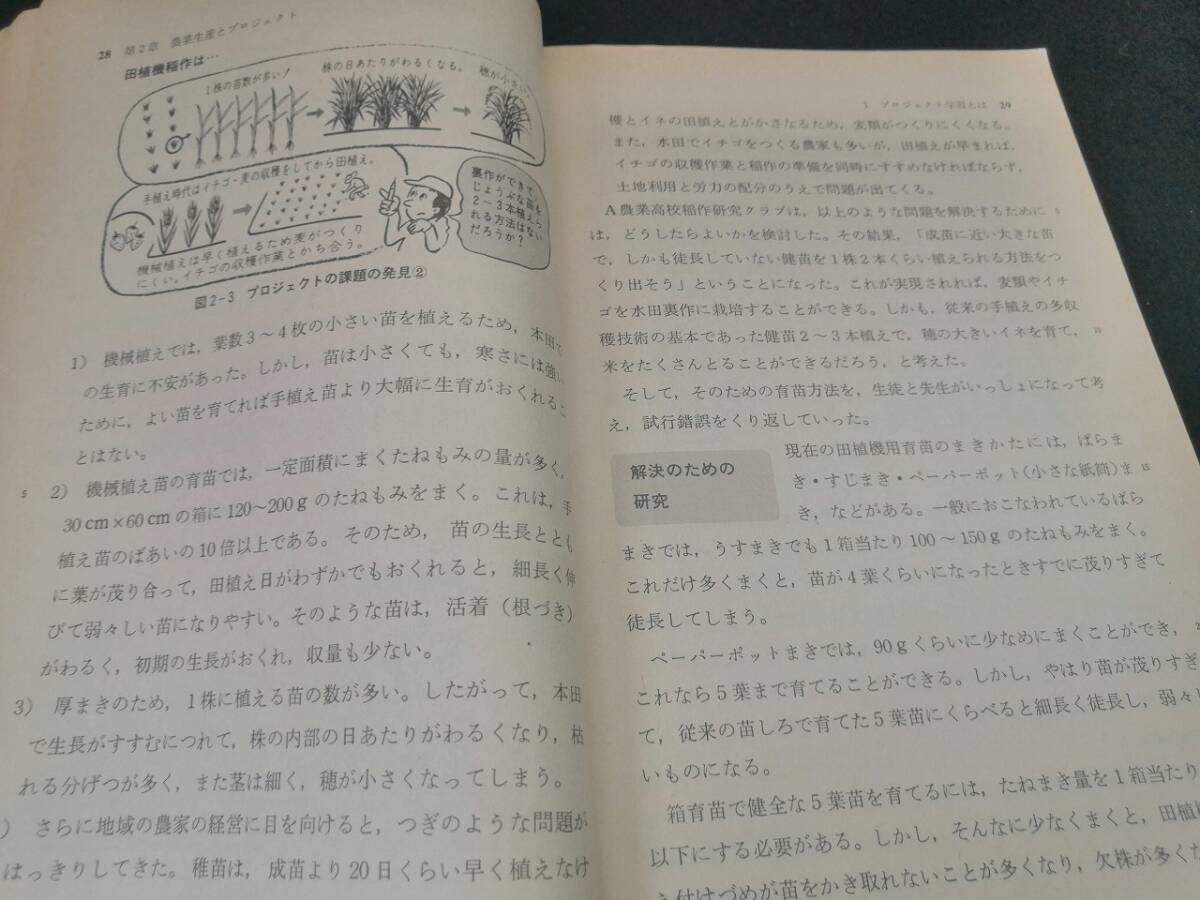 28 第2章 農業生産とプロジェクト
田植機稲作は…
1株の苗数が多い!
株の日あたりがわるくなる。
穂が小さい。
手植え時代はイチゴ・麦の収穫をしてから田植え。
機械植えは早く植えるため麦がつくり
にくい。イチゴの収穫作業とかち合う。
裏作ができて,
じょうぶな苗を
2-3本植えら
れる方法はない
だろうか?
図2-3 プロジェクトの課題の発見②
1) 機械植えでは,葉数3~4枚の小さい苗を植えるため,本田で
の生育に不安があった。しかし,苗は小さくても,寒さには強い
ために,よい苗を育てれば手植え苗より大幅に生育がおくれるこ
とはない。
5 2) 機械植え苗の育苗では,一定面積にまくたねもみの量が多く,
30cm×60cmの箱に120~200gのたねもみをまく。これは,手
植え苗のばあいの10倍以上である。そのため,苗の生長ととも
に葉が茂り合って,田植え日がわずかでもおくれると,細長く伸
びて弱々しい苗になりやすい。そのような苗は,活着(根づき)
がわるく,初期の生長がおくれ,収量も少ない。
3) 厚まきのため,1株に植える苗の数が多い。したがって,本田
で生長がすすむにつれて,株の内部の日あたりがわるくなり,枯
れる分げつが多く,また茎は細く,穂が小さくなってしまう。
) さらに地域の農家の経営に目を向けると,つぎのような問題が
はっきりしてきた。稚苗は,成苗より20日くらい早く植えなけ
1 プロジェクト学習とは 29
穫とイネの田植えとがかさなるため,麦類がつくりにくくなる。
また,本田でイチゴをつくる農家も多いが,田植えが早まれば,
イチゴの収穫作業と稲作の準備を同時にすすめなければならず,
土地利用と労力の配分のうえで問題が出てくる。
A農業高校稲作研究クラブは,以上のような問題を解決するために 5
は,どうしたらよいかを検討した。その結果,「成苗に近い大きな苗
で,しかも徒長していない健苗を1株2本くらい植えられる方法をつ
くり出そう」ということになった。これが実現されれば,麦類やイチ
ゴを水田裏作に栽培することができる。しかも,従来の手植えの多収
穫技術の基本であった健苗2~3本植えで,穂の大きいイネを育て, 10
米をたくさんとることができるだろう,と考えた。
そして,そのための育苗方法を,生徒と先生がいっしょになって考
え,試行錯誤をくり返していった。
解決のための
研究
現在の田植機用育苗のまきかたには,ばらま
き・すじまき・ペーパーポット(小さな紙筒)ま 15
き,などがある。一般におこなわれているばら
まきでは,うすまきでも1箱当たり100~150gのたねもみをまく。
これだけ多くまくと,苗が4葉くらいになったときすでに茂りすぎて
徒長してしまう。
ペーパーポットまきでは,90gくらいに少なめにまくことができ,
これなら5葉まで育てることができる。しかし,やはり苗が茂りすぎ
て,従来の苗しろで育てた5葉苗にくらべると細長く徒長し,弱々し
いものになる。
箱育苗で健全な5葉苗を育てるには,たねまき量を1箱当たり
以下にする必要がある。しかし,そんなに少なくまくと,田植機
え付けづめが苗をかき取れないことが多くなり,欠株が多くな